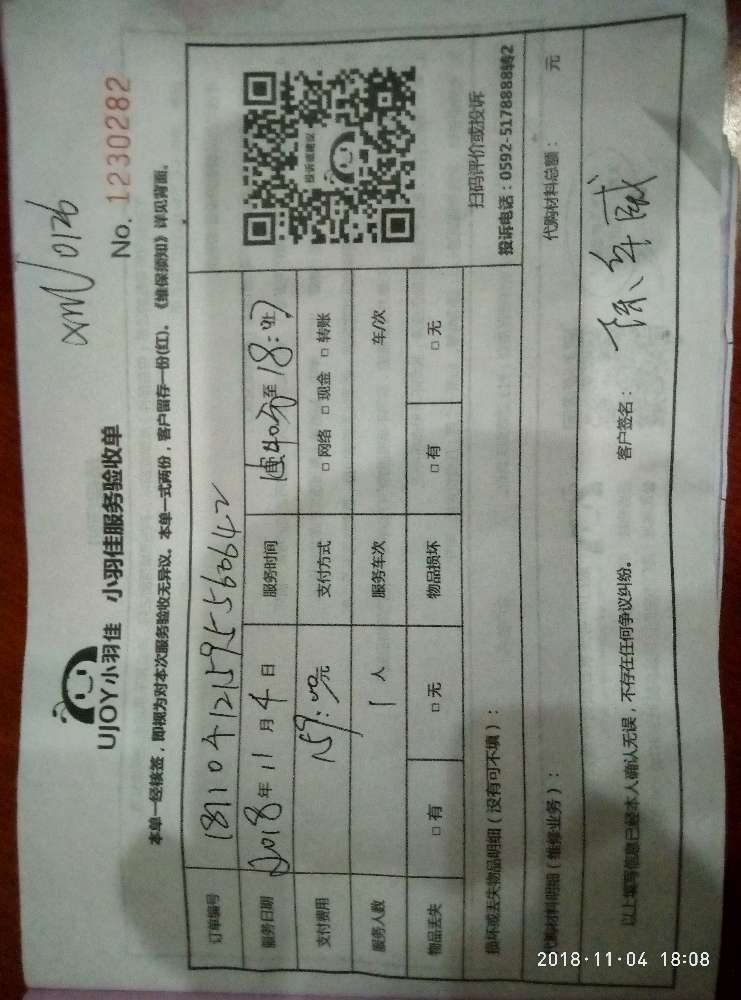 xmU0126
UJOY小羽佳 小羽佳服务验收单
No. 1230282
本单一经核签，即视为对本次服务验收无异议。本单一式两份，客户留存一份(红)。《维保须知》详见背面。
订单编号
服务日期 2018年11月4日 服务时间 至18:
支付费用 159:00元 支付方式 □网络 □现金 □转账
服务人数 1人 服务车次 车/次
物品丢失 □有 □无 物品损坏 □有 □无
投诉或建议
扫码评价或投诉
投诉电话：0592-5178888转2
损坏或丢失物品明细（没有可不填）：
代购材料明细（维修业务）： 代购材料总额： 元
以上填写信息已经本人确认无误，不存在任何争议纠纷。 客户签名：
2018·11·04 18:08